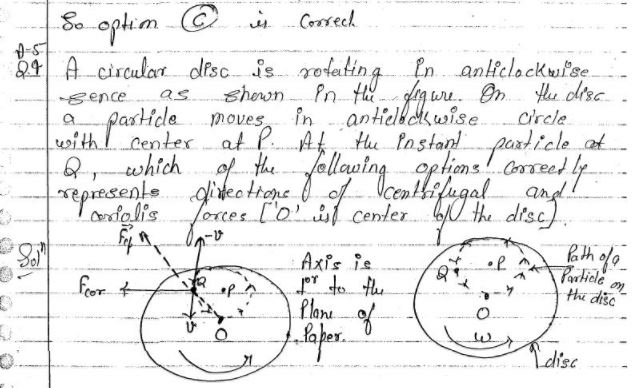 So option (C) is correct
D-5
Q.9 A circular disc is rotating in anticlockwise
sence as shown in the figure. On the disc
a particle moves in anticlockwise circle
with center at P. At the instant particle at
Q, which of the following options correctly
represents directions of centrifugal and
coriolis forces ['O' is center of the disc].
Solⁿ
F⃗cf
-v
Fcor
Q
P
v
O
Axis is
⊥ar to the
Plane of
Paper.
Q
P
O
ω
Path of a
Particle on
the disc
disc